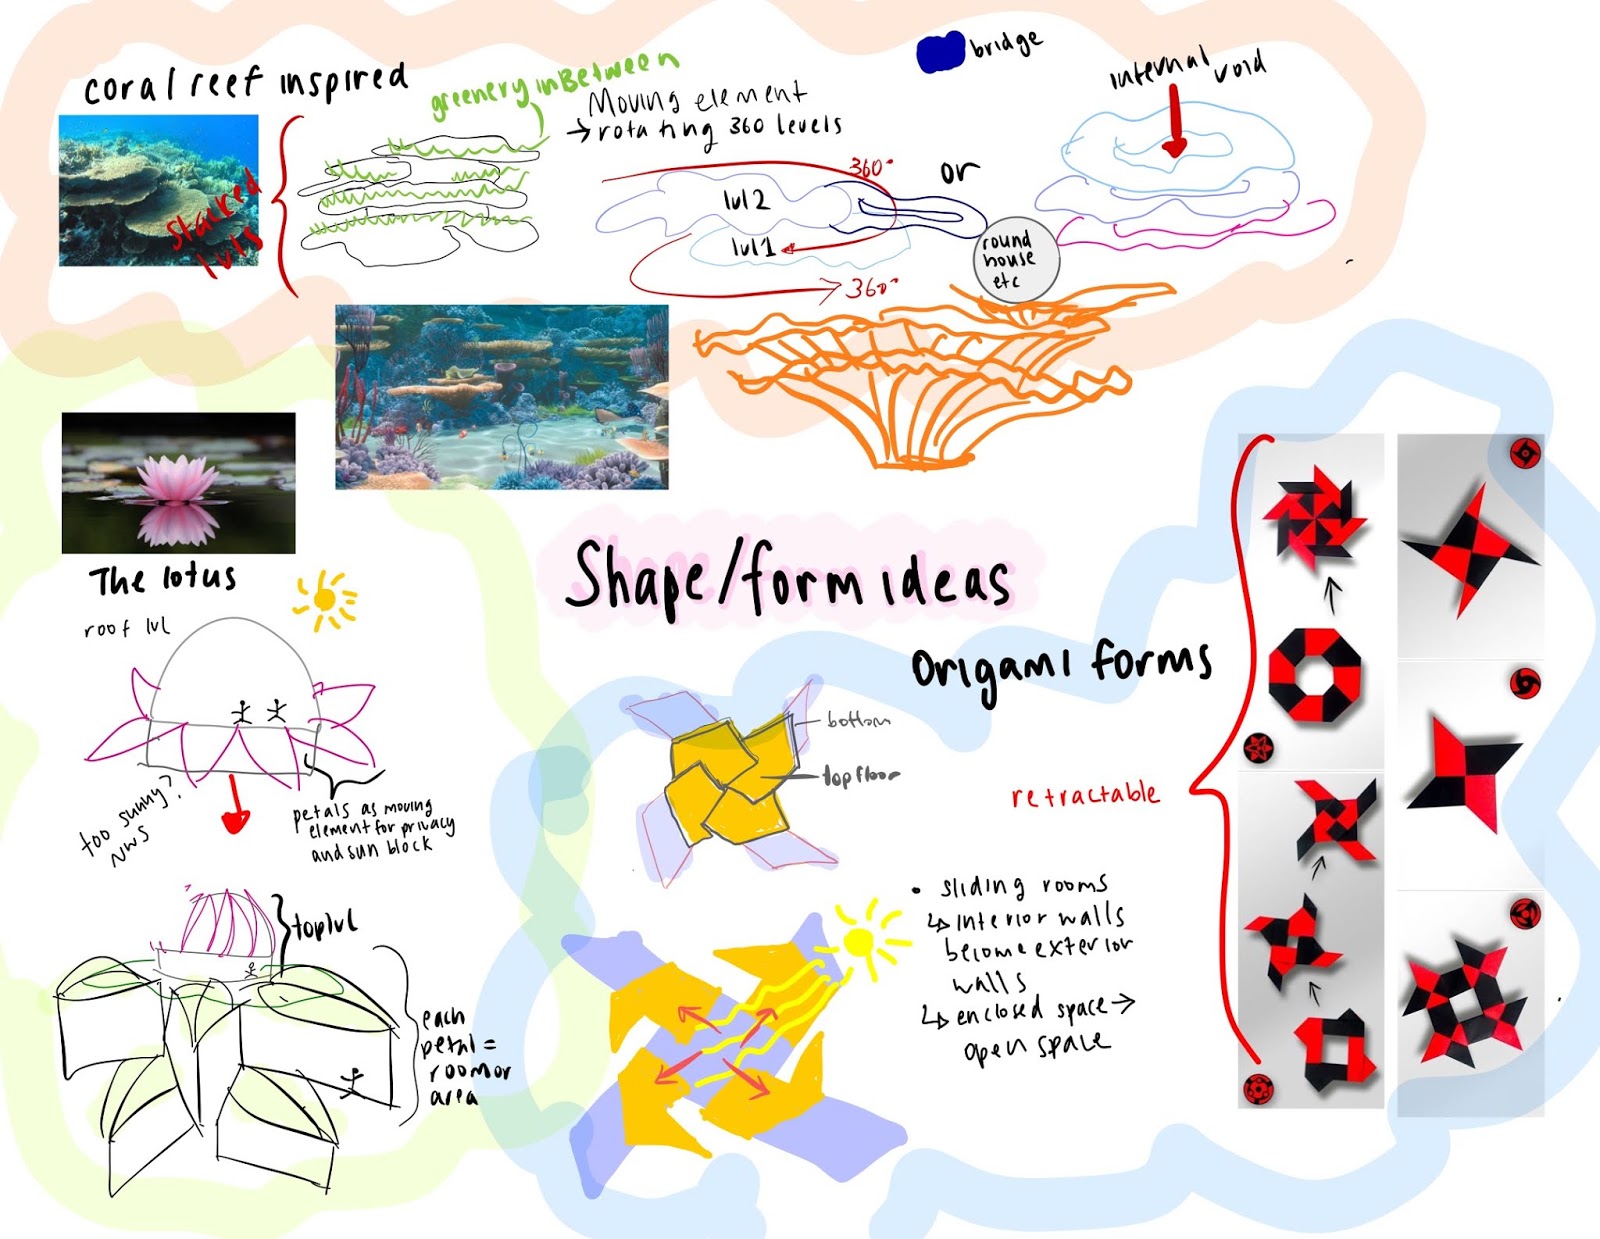 coral reef inspired
stacked
lvls
greenery inBetween
Moving element
→ rotating 360 levels
360°
lvl 2
lvl 1
360°
or
bridge
internal void
round
house
etc
Shape/form ideas
The lotus
roof lvl
too sunny?
petals as moving
element for privacy
and sun block
top lvl
each
petal =
room or
area
Origami forms
bottom
top floor
retractable
• sliding rooms
↳ interior walls
become exterior
walls
↳ enclosed space →
open space